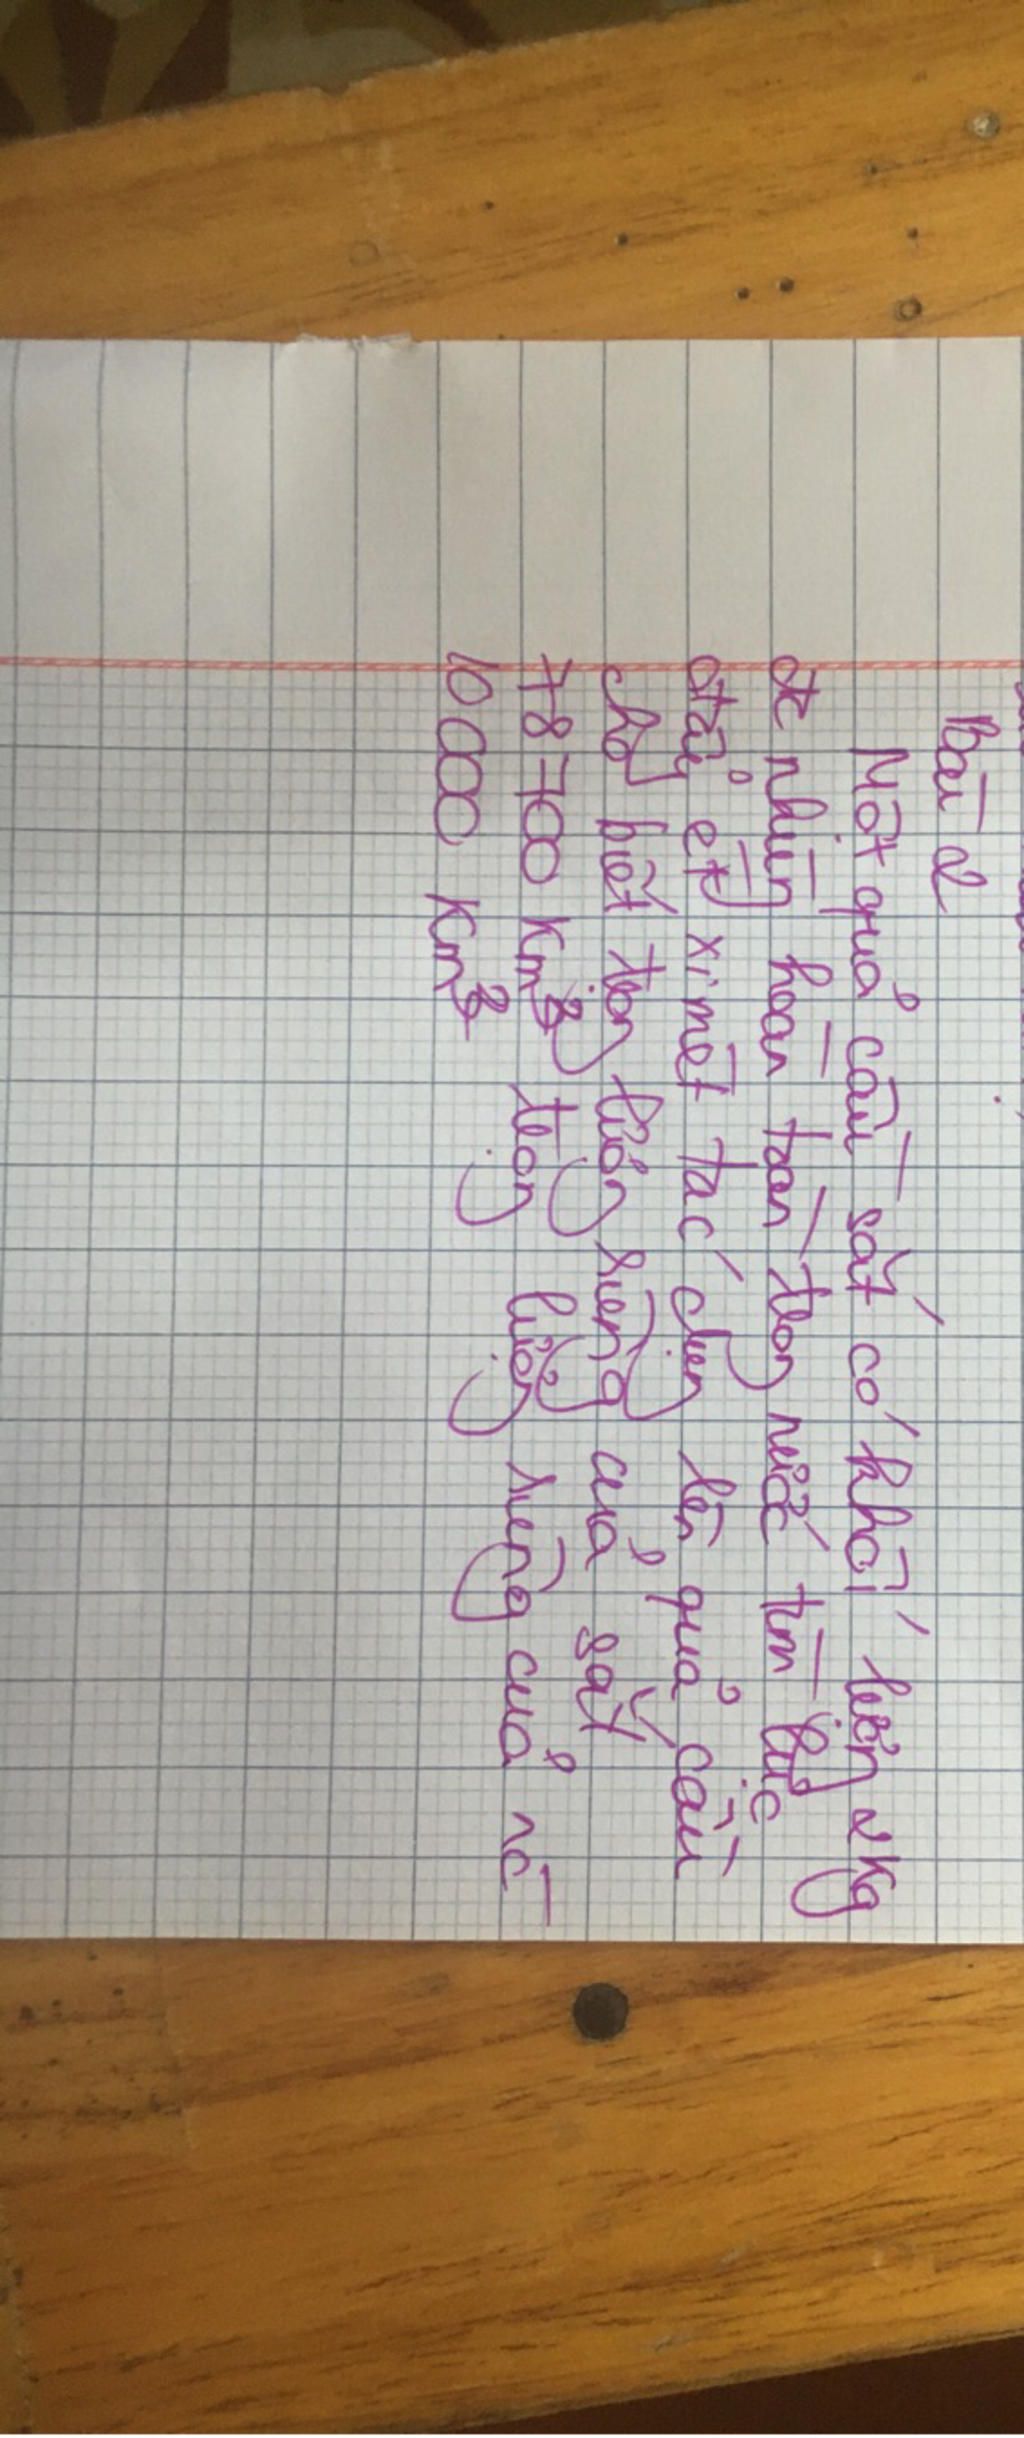 Bài 2
Một quả cầu sắt có khối lượng 2 Kg
đc nhúng hoàn toàn trong nước tìm lực
đẩy ác ximét tác dụng lên quả cầu
cho biết trọng lượng riêng của sắt
78700 Km3 trọng lượng riêng của nc
10 000 Km3